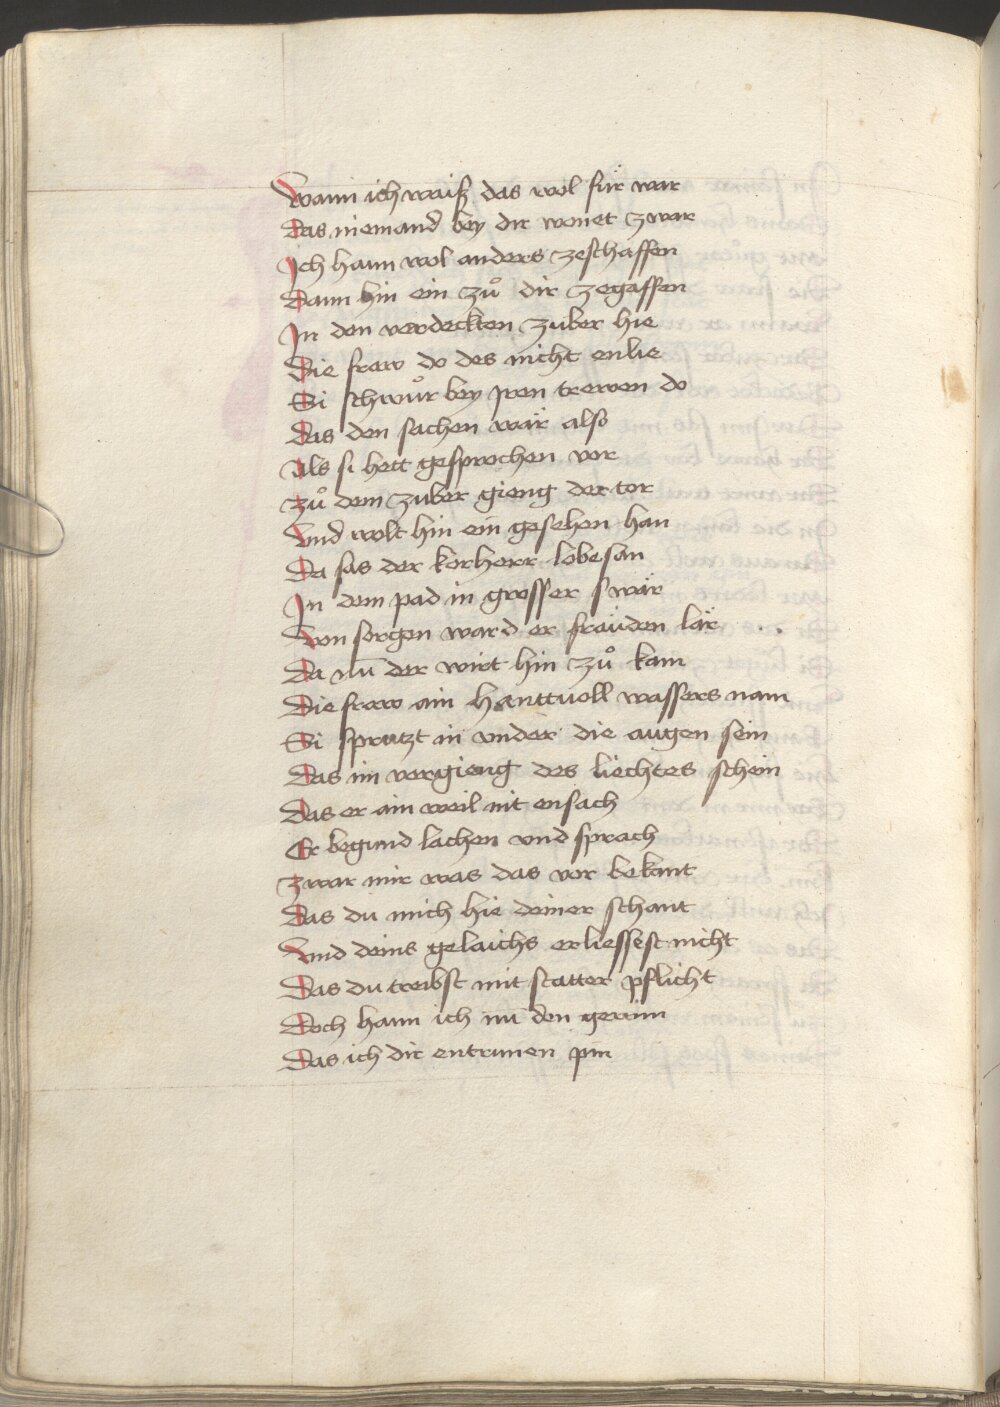 Wann ich waiß das wol für war
Das niemand bey dir wonet zwar
Ich hann wol anders zeschaffen
Dann hin ein zů dir zegaffen
In den verdeckten zuber hie
Die fraw do des nicht enlie
Si schwůr bey iren trewen do
Das den sachen wär also
Als si hett gesprochen vor
Zů dem zuber gieng der tor
Und wolt hin ein gesehen han
Da sas der korherr lobesan
In dem pad in grosser swär
Von sorgen ward er fräuden lär
Da nu der wirt hin zů kam
Die fraw ain hanttvoll wassers nam
Si sprutzt in vnder die augen sein
Das im vergieng des liechtes schein
Das er ain weil nit ensach
Er begund lachen vnd sprach
Zwar mir was das vor bekant
Das du mich hie deiner schant
Und deins gelaichs erliessest nicht
Das du treibst mit statter pflicht
Doch hann ich nu den gewinn
Das ich dir entrunen pin